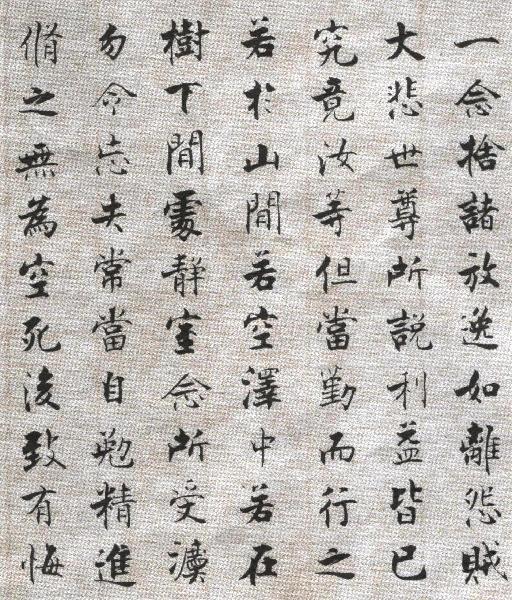 一念捨諸放逸如離怨賊
大悲世尊所説利益皆已
究竟汝等但當勤而行之
若於山間若空澤中若在
樹下閒處靜室念所受
勿令忘失常當自勉精進
脩之無為空死後致有悔